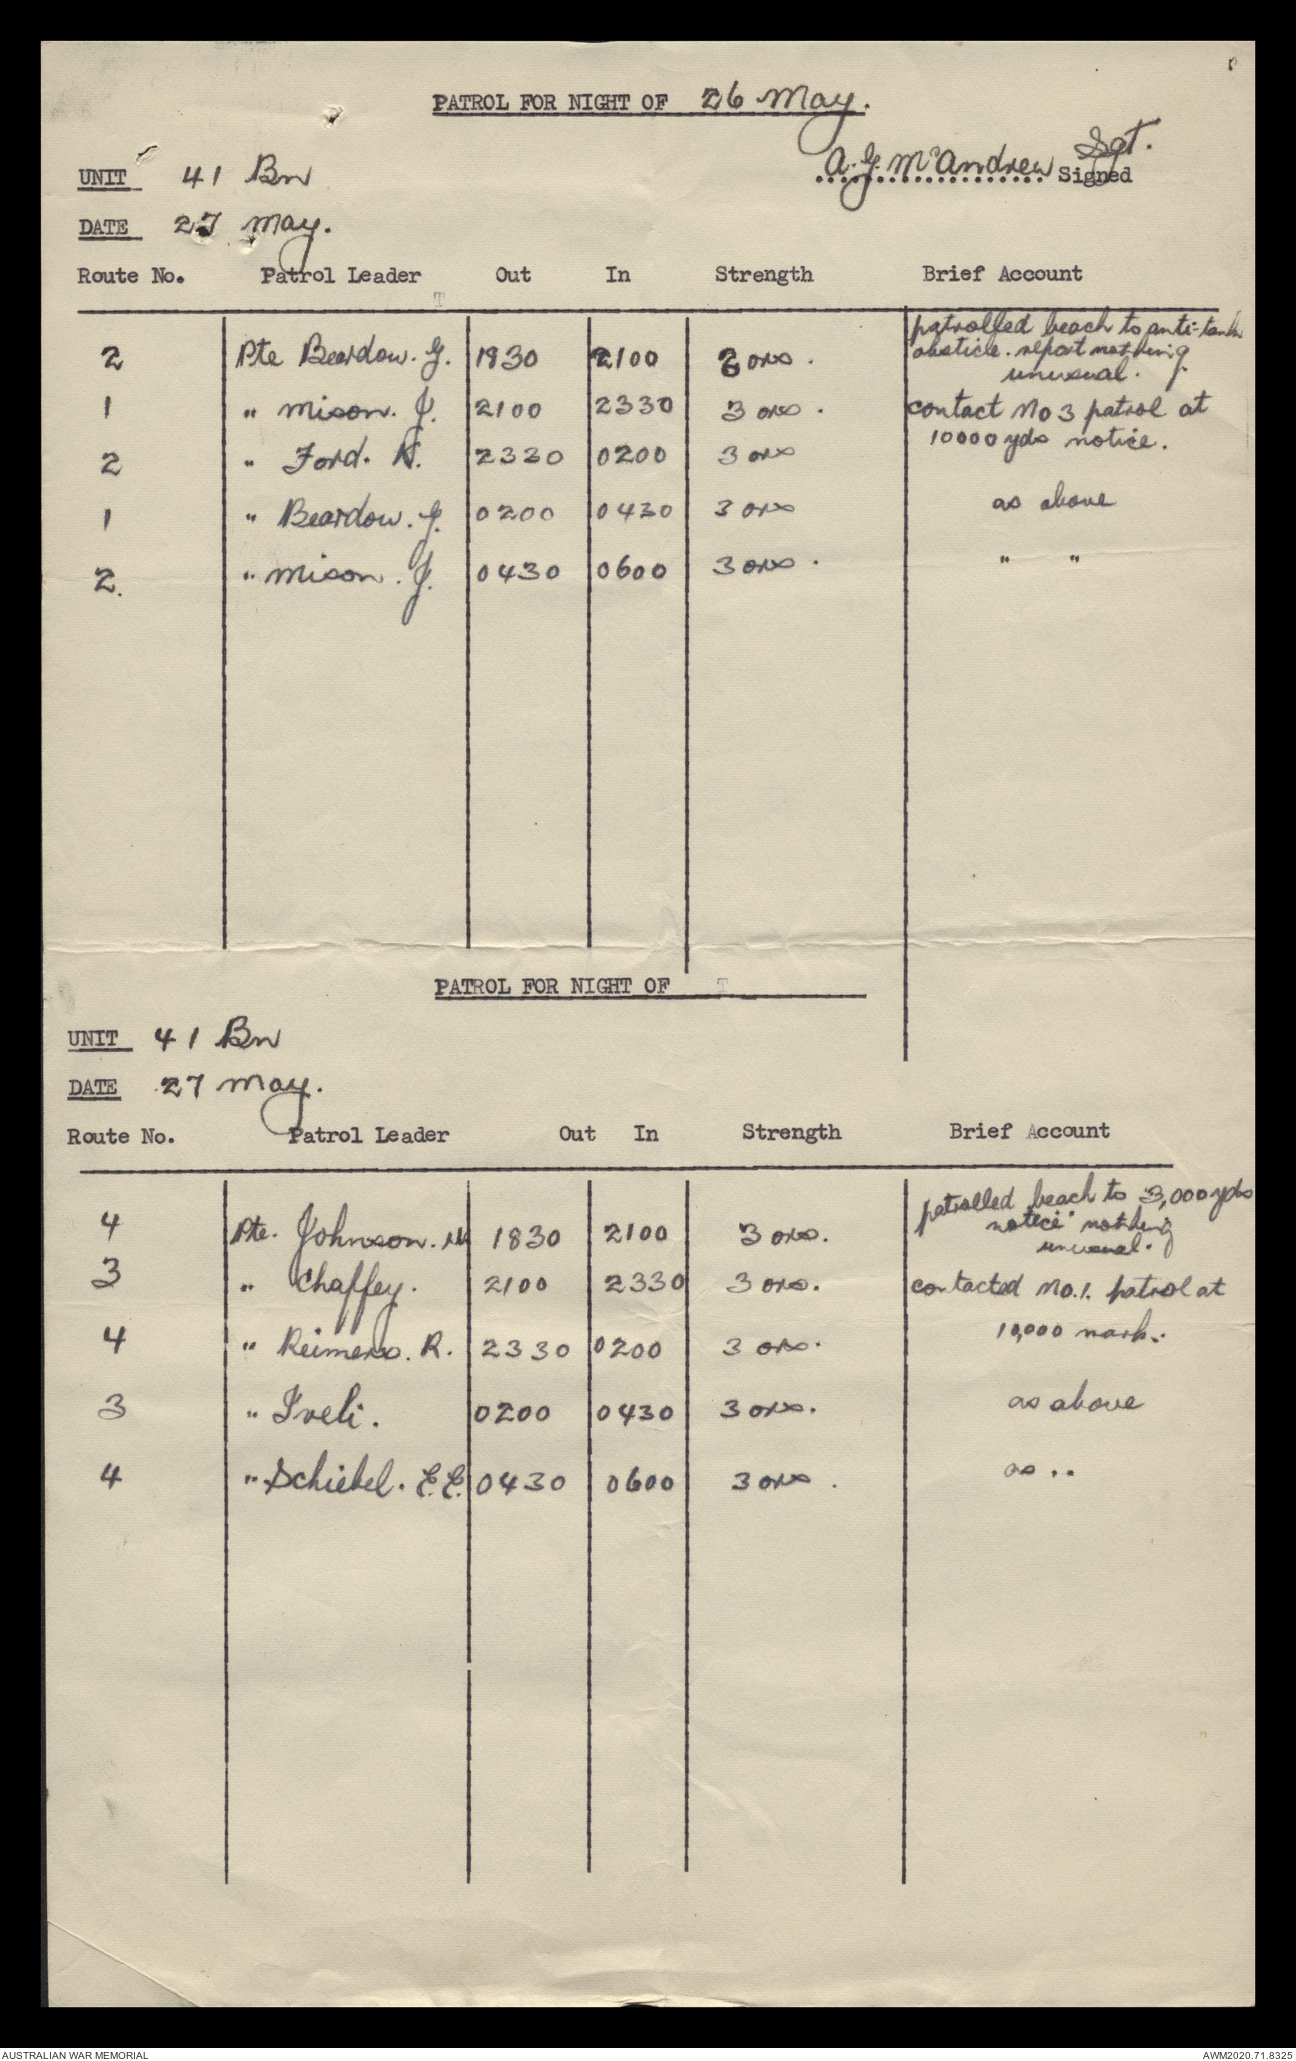 PATROL FOR NIGHT OF 26 May.
Sgt.
A.G. McAndrew Signed
UNIT 41 Bn
DATE 27 May.
Route No. Patrol Leader Out In Strength Brief Account
T
2 Pte Beardow. G. 1830 2100 3 ORs. patrolled beach to anti-tank
obsticle. report nothing
unusual.
1 " Mison. J. 2100 2330 3 ORs. contact No 3 patrol at
10000 yds notice.
2 " Ford. N. 2330 0200 3 ORs
1 " Beardow. G. 0200 0430 3 ORs as above
2. " Mison. J. 0430 0600 3 ORs. " "
PATROL FOR NIGHT OF T
UNIT 41 Bn
DATE 27 May.
Route No. Patrol Leader Out In Strength Brief Account
4 Pte. Johnson. 1830 2100 3 ORs. patrolled beach to 3,000 yds
notice nothing
unusual.
3 " Chaffey. 2100 2330 3 ORs. contacted No.1. patrol at
10,000 mark.
4 " Reimers. R. 2330 0200 3 ORs.
3 " Iveli. 0200 0430 3 ORs. as above
4 " Schiebel. E.E. 0430 0600 3 ORs. as ..
AUSTRALIAN WAR MEMORIAL AWM2020.71.8325